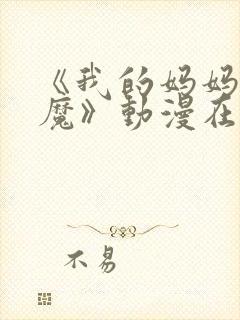 《我的妈妈
魔》動漫在
不易